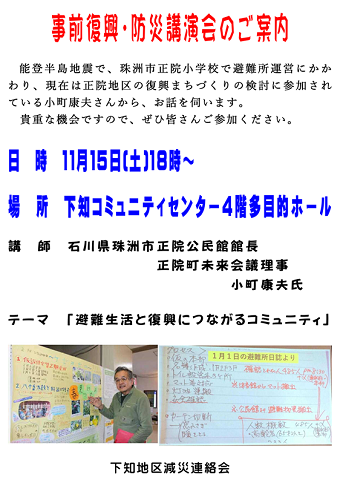 事前復興・防災講演会のご案内
能登半島地震で、珠洲市正院小学校で避難所運営にかか
わり、現在は正院地区の復興まちづくりの検討に参加され
ている小町康夫さんから、お話を伺います。
貴重な機会ですので、ぜひ皆さんご参加ください。
日　時　11月15日(土)18時～
場　所　下知コミュニティセンター4階多目的ホール
講　師　石川県珠洲市正院公民館館長
正院町未来会議理事
小町康夫氏
テーマ　「避難生活と復興につながるコミュニティ」
1月1日の避難所日誌より
下知地区減災連絡会